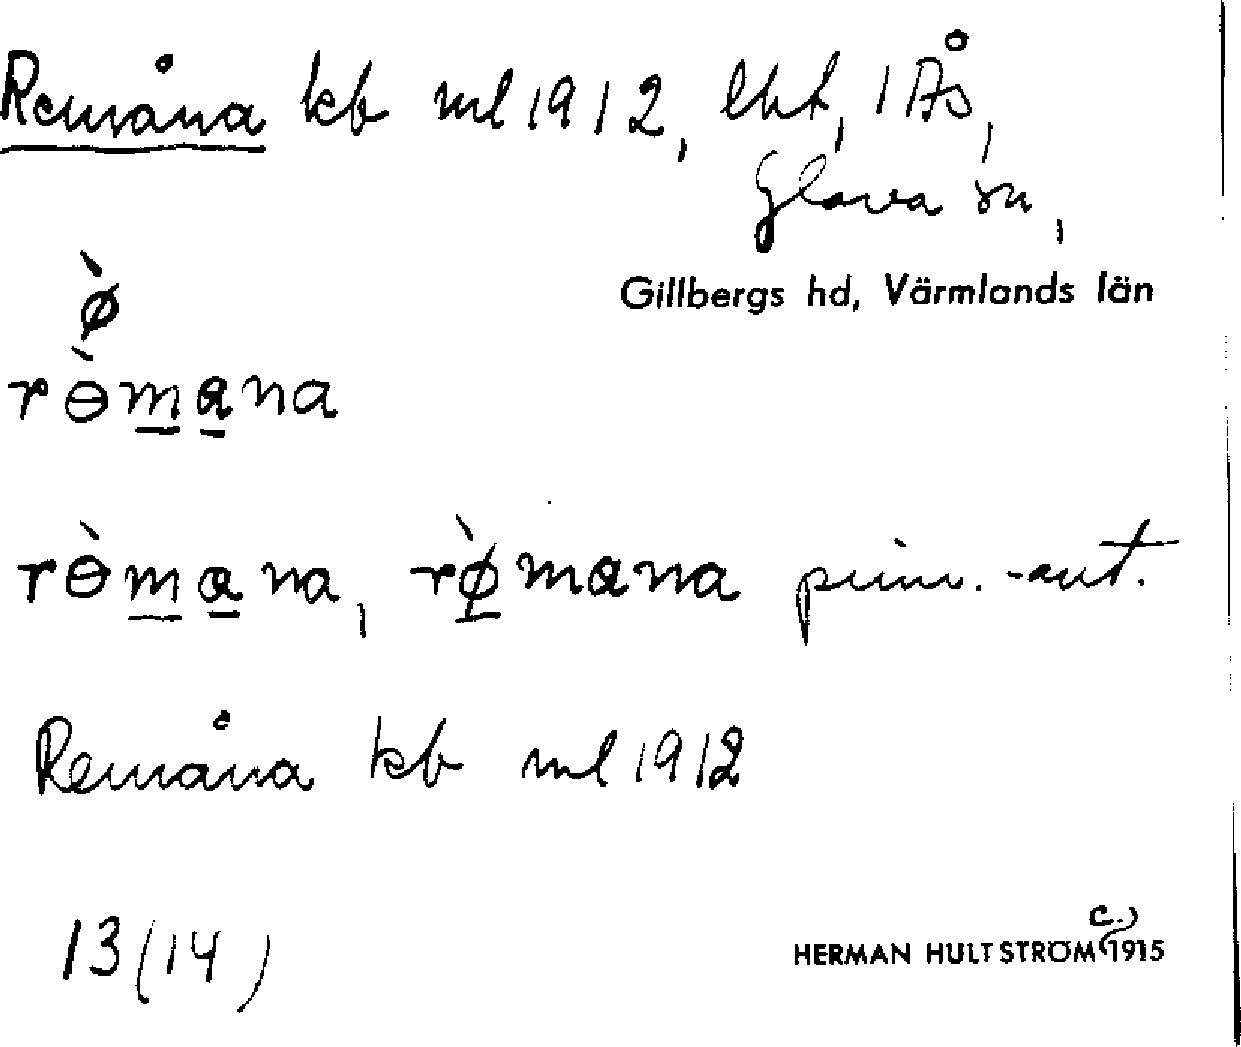 Remåna kb ml 1912, lht, 1 Ås,
Glava sn,
Gillbergs hd, Värmlands län
ø̀
rɵ̀mana
rɵ̀mana, rø̀mana pinn. -ant.
Remåna kb ml 1912
13 (14)
HERMAN HULTSTRÖM (c.) 1915